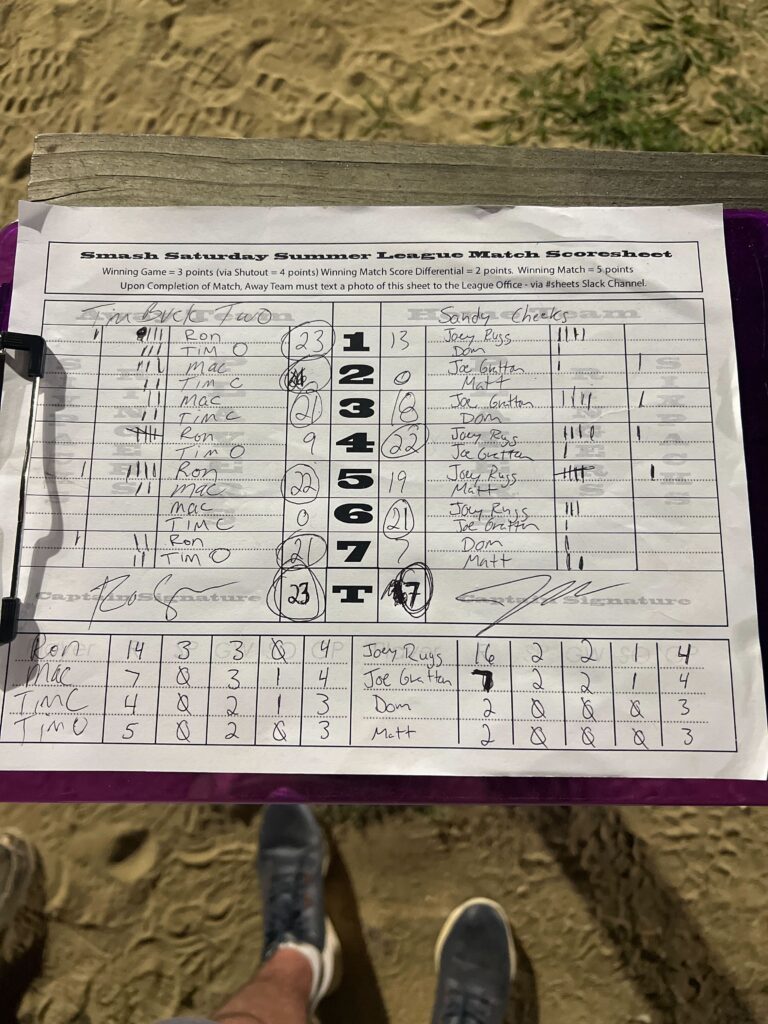 Smash Saturday Summer League Match Scoresheet
Winning Game = 3 points (via Shutout = 4 points) Winning Match Score Differential = 2 points. Winning Match = 5 points
Upon Completion of Match, Away Team must text a photo of this sheet to the League Office - via #sheets Slack Channel.
Tim Buck Two Sandy Cheeks
Ron 23 1 13 Joey Rugs
Tim O Dom
Mac 2 0 Joe Gratton
Tim C Matt
Mac 21 3 18 Joe Gratton
Tim C Dom
Ron 9 4 22 Joey Rugs
Tim O Joe Gratten
Ron 22 5 19 Joey Rugs
Mac Matt
Mac 0 6 21 Joey Rugs
Tim C Joe Gratton
Ron 21 7 7 Dom
Tim O Matt
Captain Signature 23 T 7 Captain Signature
Ron 14 3 3 0 4 Joey Rugs 16 2 2 1 4
Mac 7 0 3 1 4 Joe Gratten 7 2 2 1 4
Tim C 4 0 2 1 3 Dom 2 0 0 0 3
Tim O 5 0 2 0 3 Matt 2 0 0 0 3